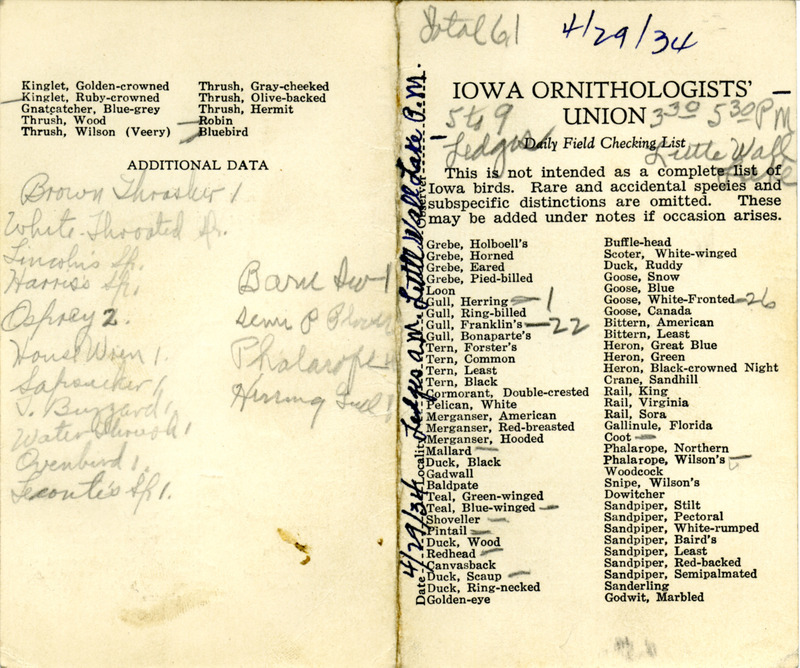 Kinglet, Golden-crowned
Kinglet, Ruby-crowned
Gnatcatcher, Blue-grey
Thrush, Wood
Thrush, Wilson (Veery)
Thrush, Gray-cheeked
Thrush, Olive-backed
Thrush, Hermit
Robin
Bluebird
ADDITIONAL DATA
Brown Thrasher 1
White-Throated Sp.
Lincoln's Sp.
Harris's Sp.
Osprey 2.
House Wren 1.
Sapsucker 1
T. Buzzard 1
Water Thrush 1
Ovenbird 1.
Leconte's Sp 1.
Barn Sw-1
Semi P Plover
Phalarope
Herring Gull 1
Total 61
4/29/34
IOWA ORNITHOLOGISTS'
UNION
5 to 9
Ledges
3 30 5 30 P M
Little Wall
Lake
Daily Field Checking List
This is not intended as a complete list of
Iowa birds. Rare and accidental species and
subspecific distinctions are omitted. These
may be added under notes if occasion arises.
Date 4/29/34 Locality Ledges a.m. Little Wall Lake P.M. Observer
Grebe, Holboell's
Grebe, Horned
Grebe, Eared
Grebe, Pied-billed
Loon
Gull, Herring — 1
Gull, Ring-billed
Gull, Franklin's — 22
Gull, Bonaparte's
Tern, Forster's
Tern, Common
Tern, Least
Tern, Black
Cormorant, Double-crested
Pelican, White
Merganser, American
Merganser, Red-breasted
Merganser, Hooded
Mallard —
Duck, Black
Gadwall
Baldpate
Teal, Green-winged
Teal, Blue-winged —
Shoveller —
Pintail —
Duck, Wood
Redhead —
Canvasback
Duck, Scaup —
Duck, Ring-necked
Golden-eye
Buffle-head
Scoter, White-winged
Duck, Ruddy
Goose, Snow
Goose, Blue
Goose, White-Fronted — 26
Goose, Canada
Bittern, American
Bittern, Least
Heron, Great Blue
Heron, Green
Heron, Black-crowned Night
Crane, Sandhill
Rail, King
Rail, Virginia
Rail, Sora
Gallinule, Florida
Coot —
Phalarope, Northern
Phalarope, Wilson's
Woodcock
Snipe, Wilson's
Dowitcher
Sandpiper, Stilt
Sandpiper, Pectoral
Sandpiper, White-rumped
Sandpiper, Baird's
Sandpiper, Least
Sandpiper, Red-backed
Sandpiper, Semipalmated
Sanderling
Godwit, Marbled